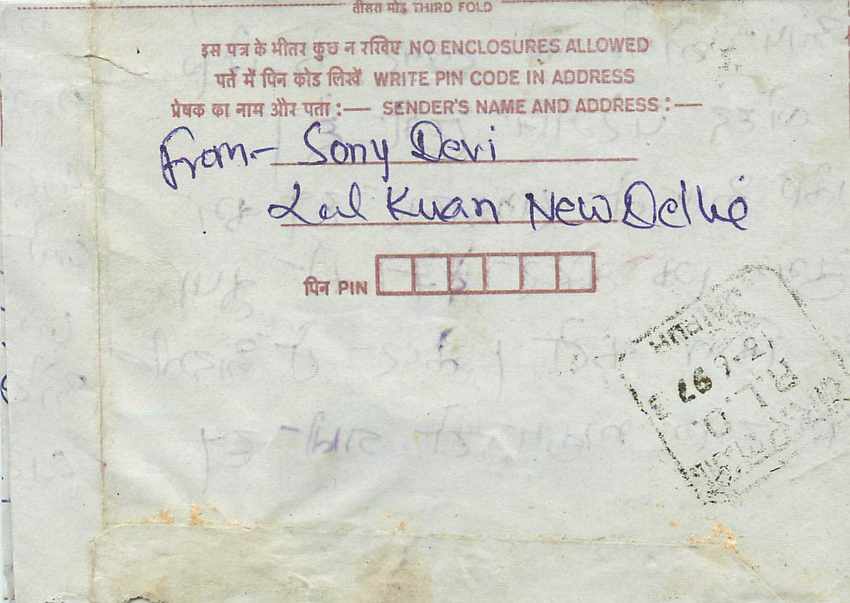 तीसरा मोड़ THIRD FOLD
इस पत्र के भीतर कुछ न रखिए NO ENCLOSURES ALLOWED
पते में पिन कोड लिखें WRITE PIN CODE IN ADDRESS
प्रेषक का नाम और पता :— SENDER'S NAME AND ADDRESS :—
From - Sony Devi
Lal Kuan New Delhi
पिन PIN
97
R.L.O.